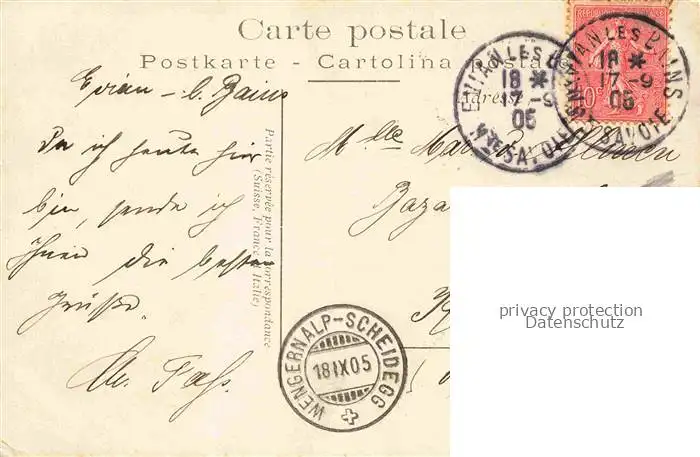 Carte postale
Postkarte - Cartolina postale
Adresse
Evian - l. Bains
Da ich heute hier
bin, sende ich
Ihnen die besten
Grüße.
Partie réservée pour la correspondance
(Suisse, France et Italie)
Mlle
EVIAN LES BAINS
18 *
17-9
05
HTE SAVOIE
EVIAN LES BAINS
18 *
17-9
05
HTE SAVOIE
10c
WENGERNALP-SCHEIDEGG
18 IX 05
privacy protection
Datenschutz